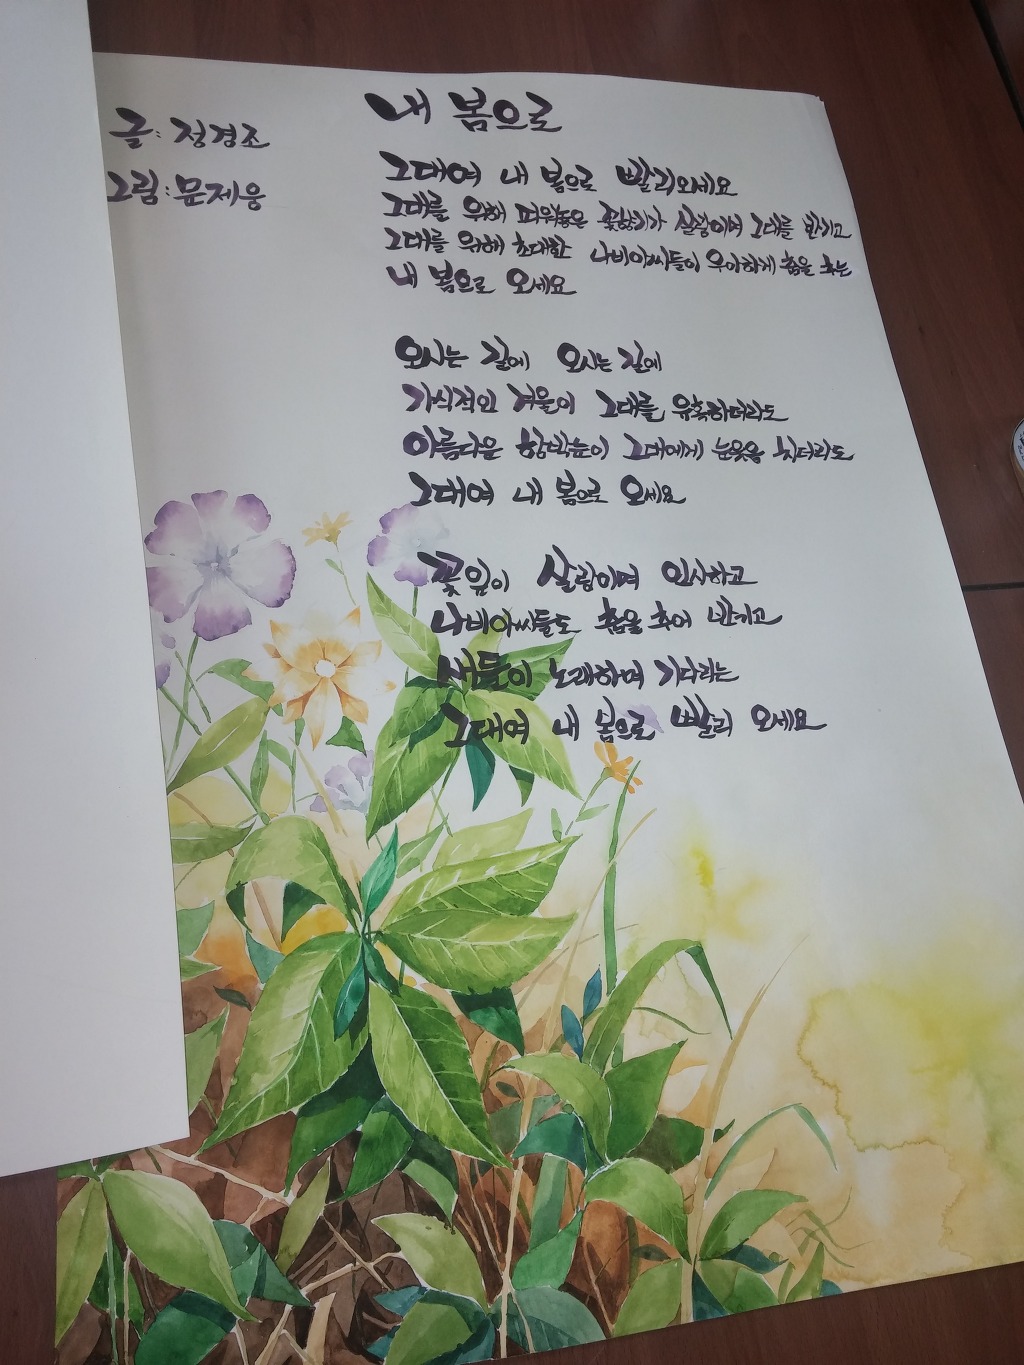 내 봄으로
글: 정경조
그림: 문제웅
그대여 내 봄으로 빨리오세요
그대를 위해 피워놓은 꽃향기가 살랑이며 그대를 반기고
그대를 위해 초대한 나비아씨들이 우아하게 춤을 추는
내 봄으로 오세요
오시는 길에 오시는 길에
가식적인 겨울이 그대를 유혹하더라도
아름다운 함박눈이 그대에게 눈웃음 치더라도
그대여 내 봄으로 오세요
꽃잎이 살랑이며 인사하고
나비아씨들도 춤을 추어 반기고
새들이 노래하며 기다리는
그대여 내 봄으로 빨리 오세요